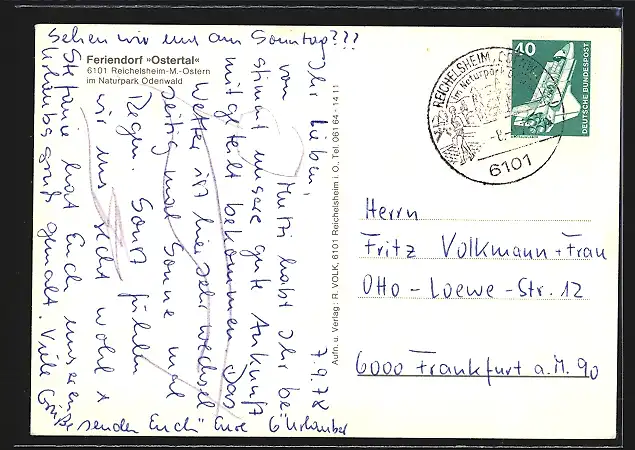 Sehen wir uns am Sonntag???
Feriendorf »Ostertal«
6101 Reichelsheim-M.-Ostern
im Naturpark Odenwald
7.9.78
Ihr Lieben,
von Mutti habt Ihr be-
stimmt unsere gute Ankunft
mitgeteilt bekommen. Das
Wetter ist hier sehr wechsel
zeitig mal Sonne mal
Regen. Sonst fühlen
wir uns recht wohl +
Stefanie hat Euch unseren
Urlaubsgruß gemalt. Viele
Grüße senden Euch Eure 6 Urlauber
Aufn. u. Verlag: R. VOLK, 6101 Reichelsheim i. O., Tel. 06164-1411
REICHELSHEIM, ODENW
im Naturpark
6101
40
DEUTSCHE BUNDESPOST
Herrn
Fritz Volkmann + Frau
Otto-Loewe-Str. 12
6000 Frankfurt a.M. 90